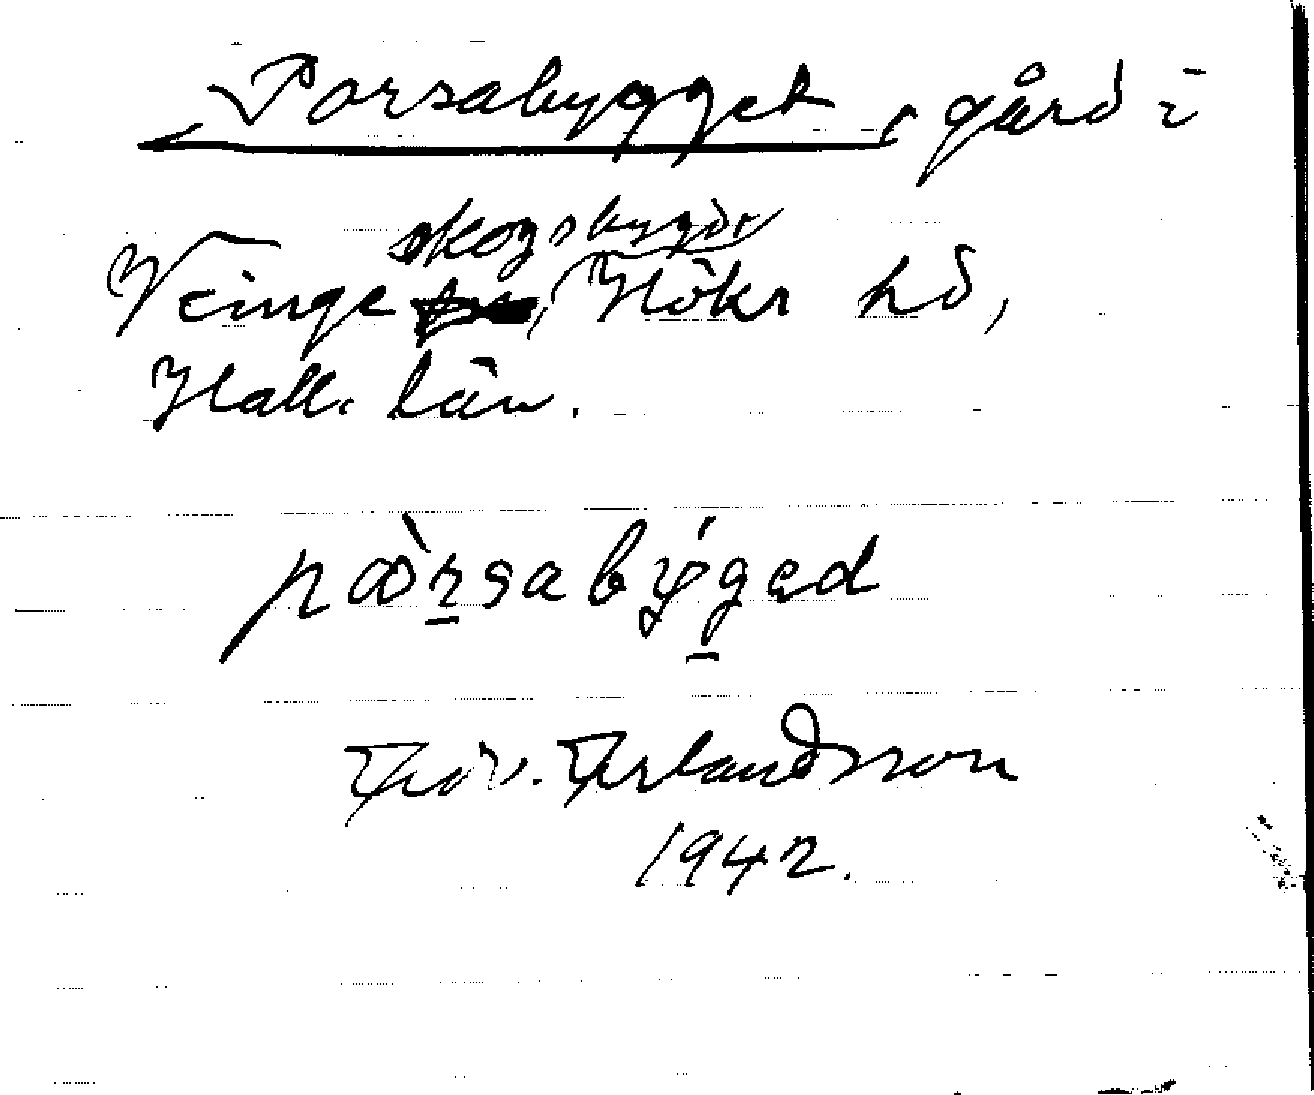 Porsabygget, gård i
Veinge skogsbygd, Höks hd,
Hall. län.
pòrsabýged
Erlandsson
1942.